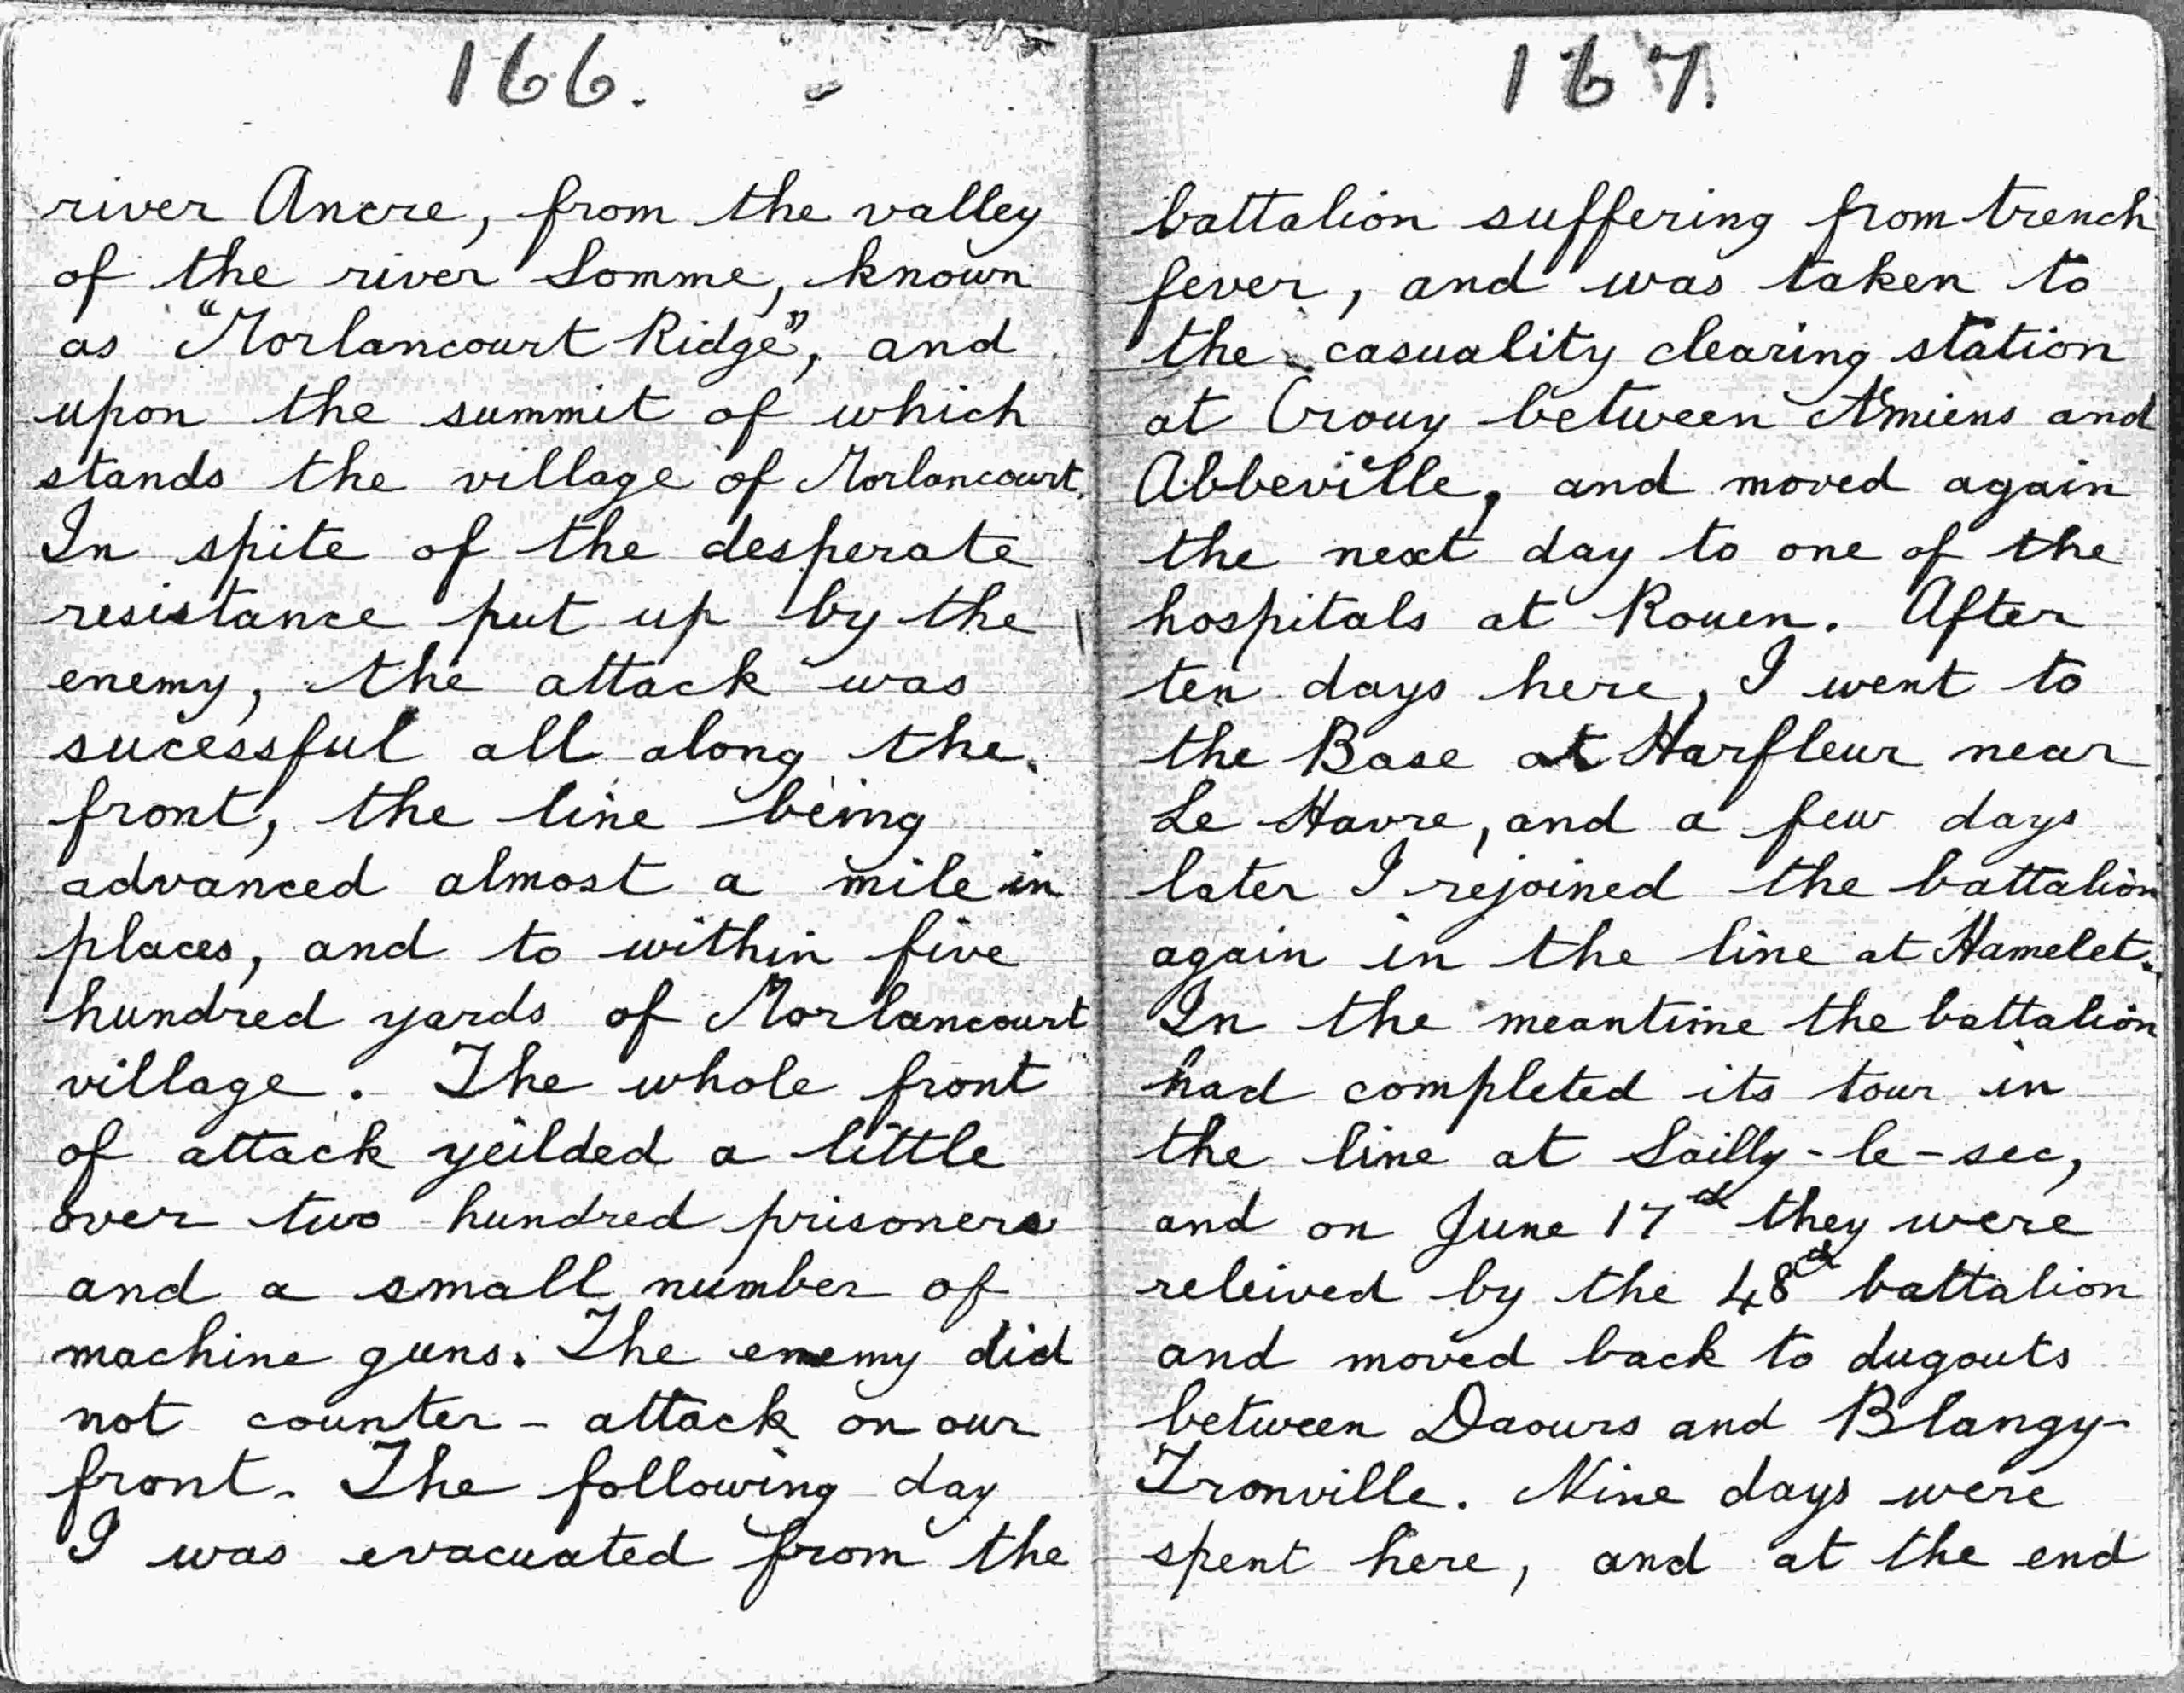 166.
river Ancre, from the valley
of the river Somme, known
as "Morlancourt Ridge", and
upon the summit of which
stands the village of Morlancourt.
In spite of the desperate
resistance put up by the
enemy, the attack was
sucessful all along the
front, the line being
advanced almost a mile in
places, and to within five
hundred yards of Morlancourt
village. The whole front
of attack yeilded a little
over two hundred prisoners
and a small number of
machine guns. The enemy did
not counter-attack on our
front. The following day
I was evacuated from the
167.
battalion suffering from trench
fever, and was taken to
the casuality clearing station
at Crouy between Amiens and
Abbeville, and moved again
the next day to one of the
hospitals at Rouen. After
ten days here, I went to
the Base at Harfleur near
Le Havre, and a few days
later I rejoined the battalion
again in the line at Hamelet.
In the meantime the battalion
had completed its tour in
the line at Sailly-le-sec,
and on June 17th they were
releived by the 48th battalion
and moved back to dugouts
between Daours and Blangy-
Tronville. Nine days were
spent here, and at the end